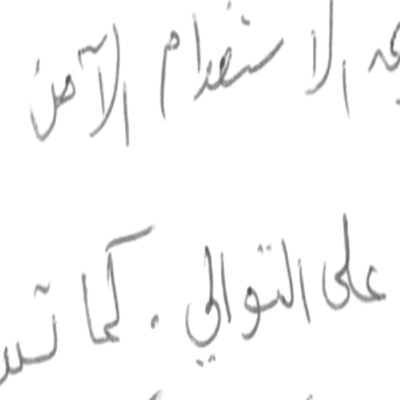 الاستخدام الآمن
على التوالي . كما